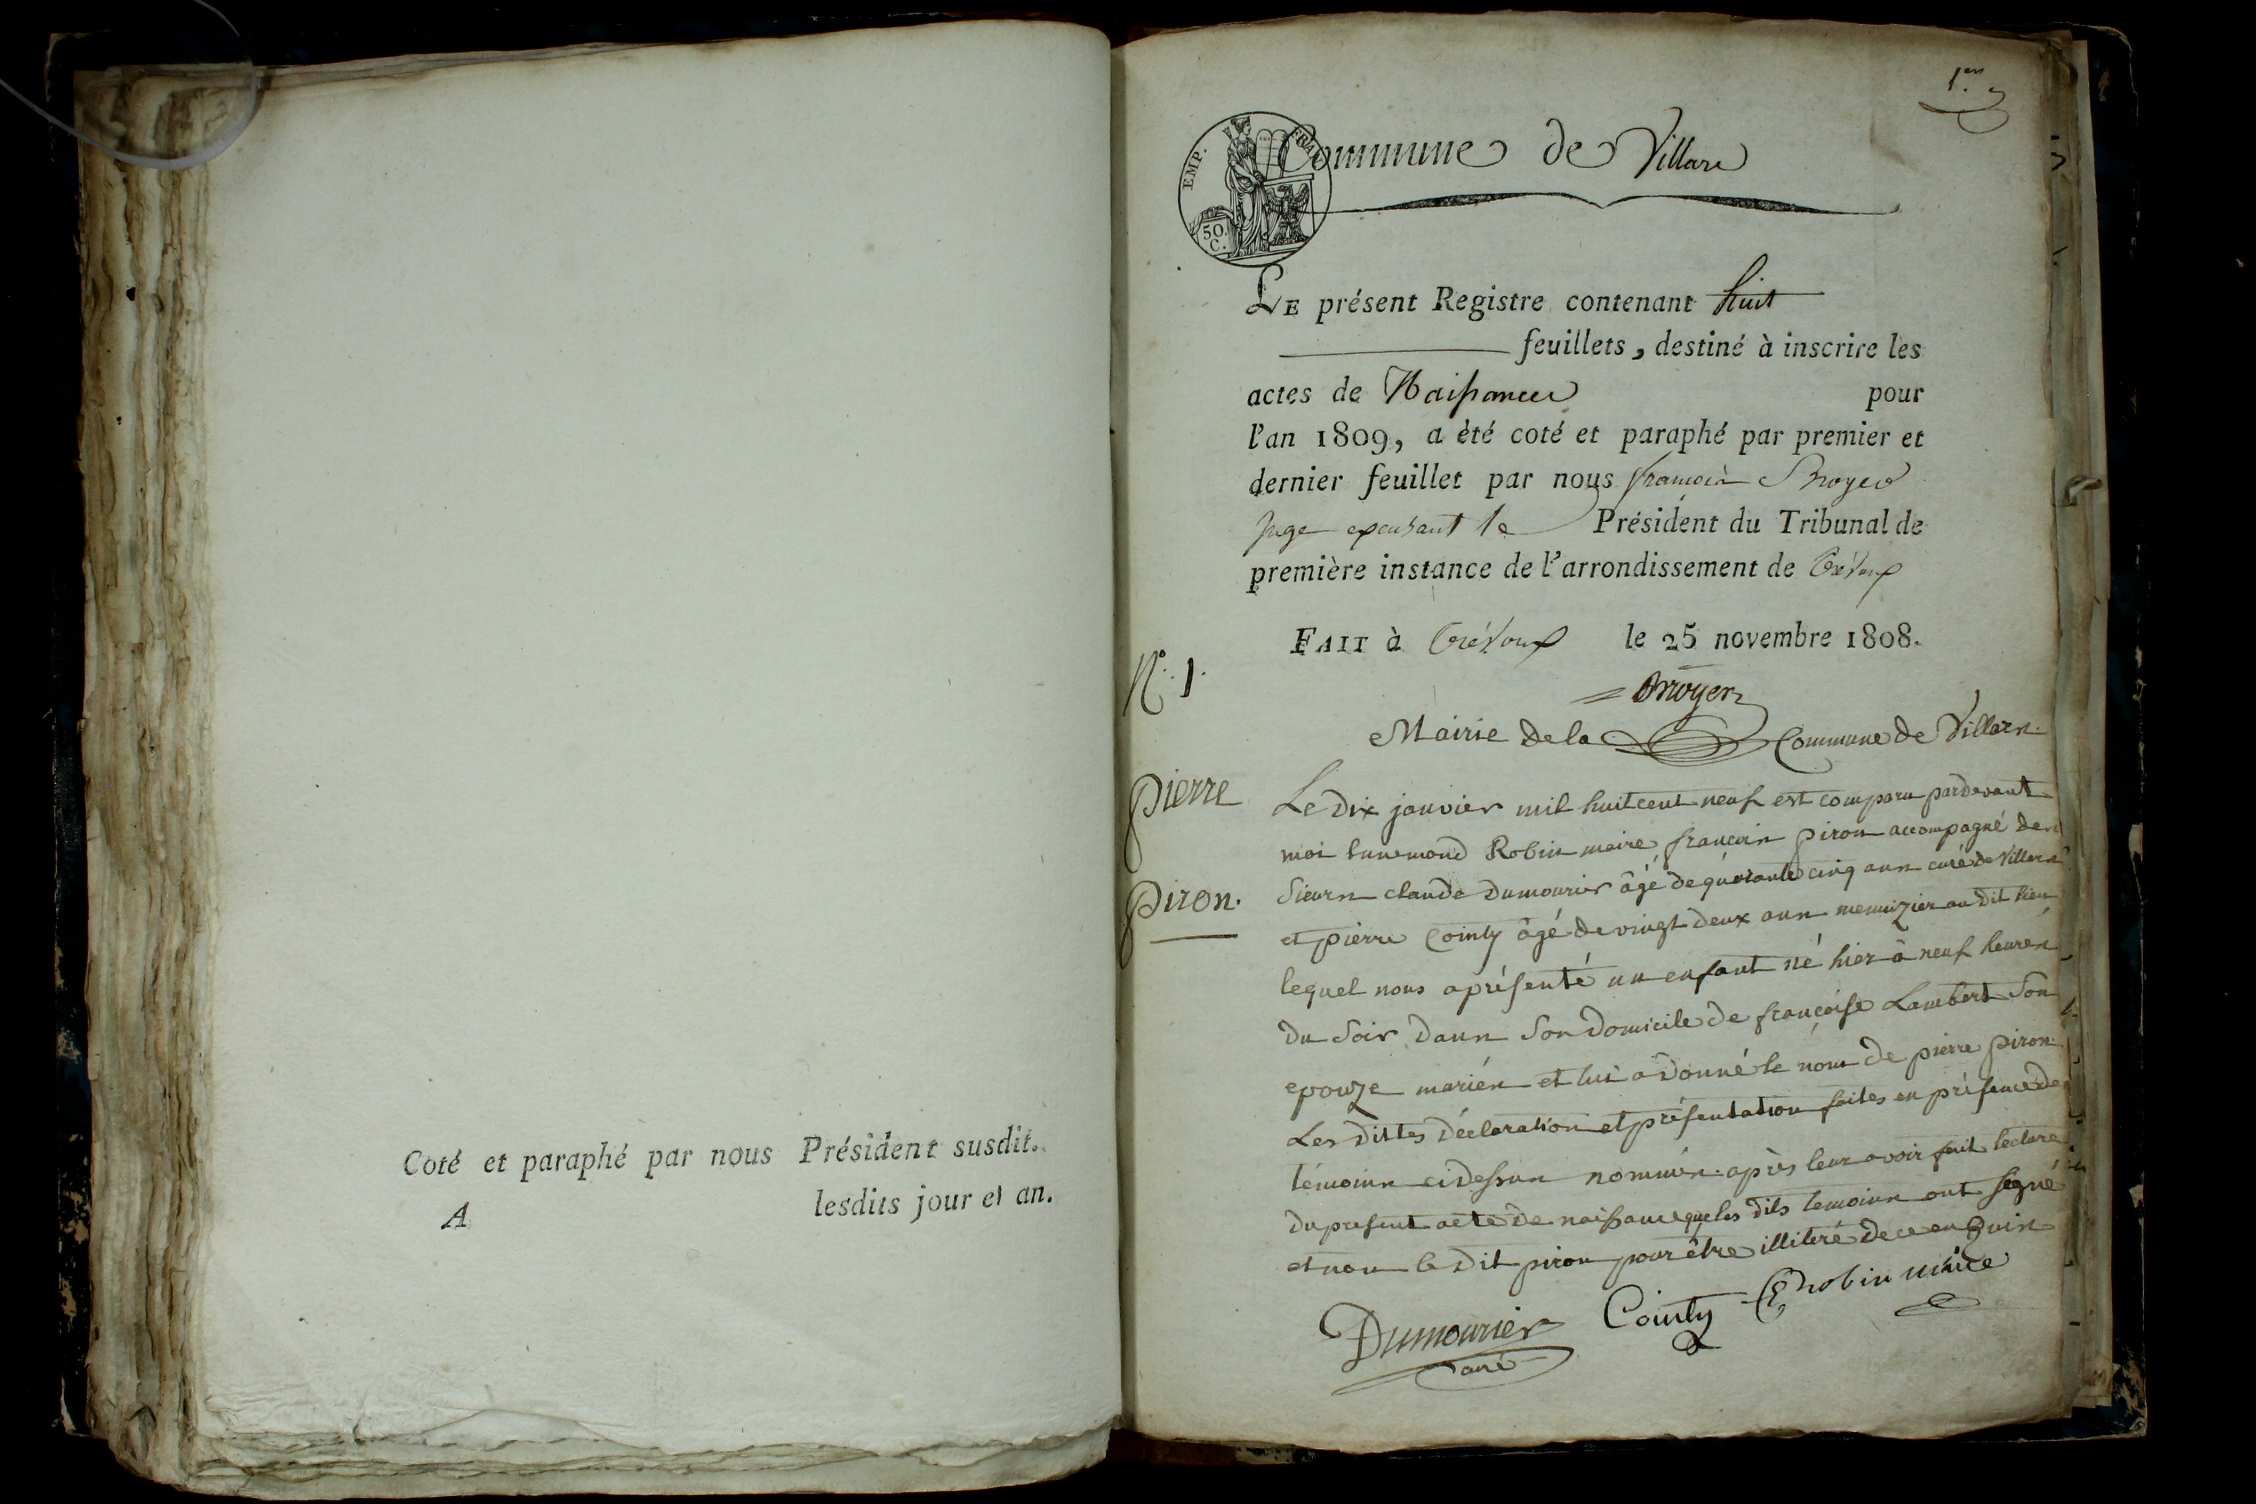 Coté et paraphé par nous Président susdit.
A lesdits jour et an.
1.er
EMP. FRAN
50. C.
Commune de Villars
LE présent Registre contenant huit
feuillets, destiné à inscrire les
actes de Naissances pour
l'an 1809, a èté coté et paraphé par premier et
dernier feuillet par nous françois Broyer
Juge exerçant le Président du Tribunal de
première instance de l'arrondissement de Trévoux
FAIT à Trévoux le 25 novembre 1808.
N.° 1.
Broyer
Mairie de la Commune de Villars.
pierre
piron.
Le Dix janvier mil huit cent neuf est comparu pardevant
moi Ennemond Robin maire, françois piron accompagné des
Sieurs claude Dumourier âgé de quarante cinq ans curé de Villars
et pierre Cointy âgé de vingt deux ans menuizier au dit lieu
lequel nous a présenté un enfant né hier à neuf heures
du Soir dans Son Domicile de françoise Lambert Son
epouze mariés et lui a Donné le nom de pierre piron
Les dittes Déclaration et présentation faites en présence des
témoins ci dessus nommés. après leur avoir fait lecture
du present acte de naissance que les dits temoins ont segné
et non le Dit piron pour être illiteré de ce enquis
Dumourier Cointy E robin maire
curé